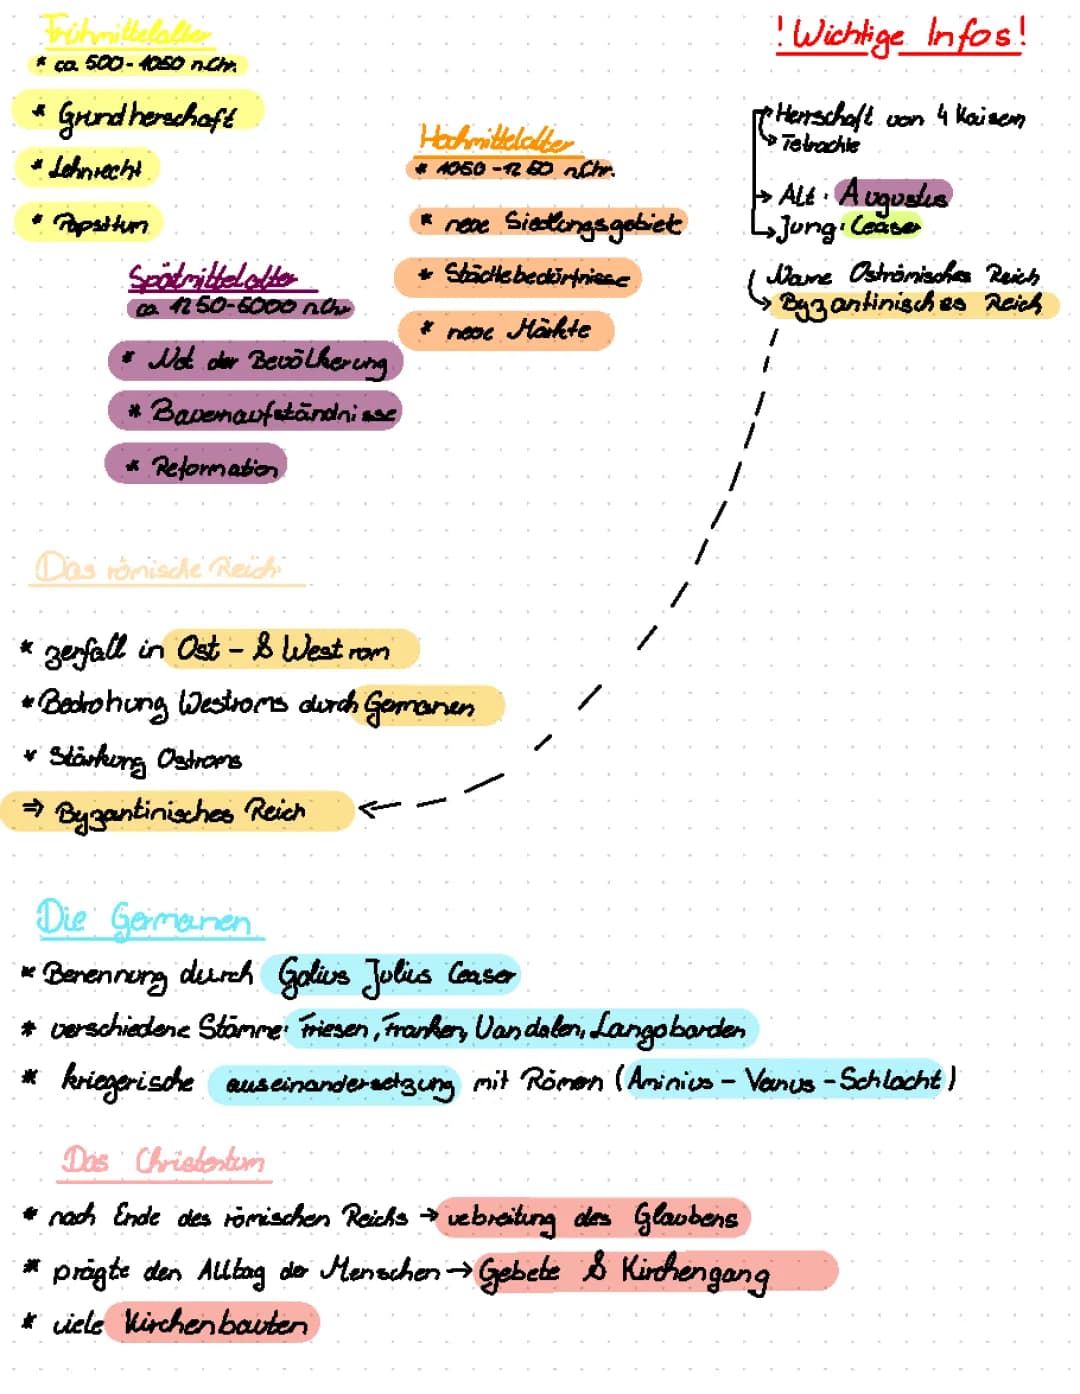 Frühmittelalter
* ca. 500 - 1050 n.Chr.
* Grundherschaft
* Lehnrecht
* Papsttum
Hochmittelalter
* 1050 - 1250 n.Chr.
* neue Siedlungsgebiet
* Städtebedürfnisse
* neue Märkte
Spätmittelalter
ca. 1250-5000 n.Chr
* Not der Bevölkerung
* Bauernaufständnisse
* Reformation
! Wichtige Infos!
Herrschaft von 4 Kaisern
Tetrachie
→ Alt: Augustus
→ Jung: Ceaser
Name Oströmisches Reich
→ Byzantinisches Reich
Das römische Reich
* zerfall in Ost - & West rom
* Bedrohung Westroms durch Germanen
* Stärkung Ostroms
⇒ Byzantinisches Reich
Die Germanen
* Benennung durch Galius Julius Ceaser
* verschiedene Stämme: Friesen, Franken, Vandalen, Langobarden
* kriegerische auseinandersetzung mit Römern (Aminius - Varus - Schlacht)
Das Christentum
* nach Ende des römischen Reichs → vebreitung des Glaubens
* prägte den Alltag der Menschen → Gebete & Kirchengang
* viele Kirchenbauten